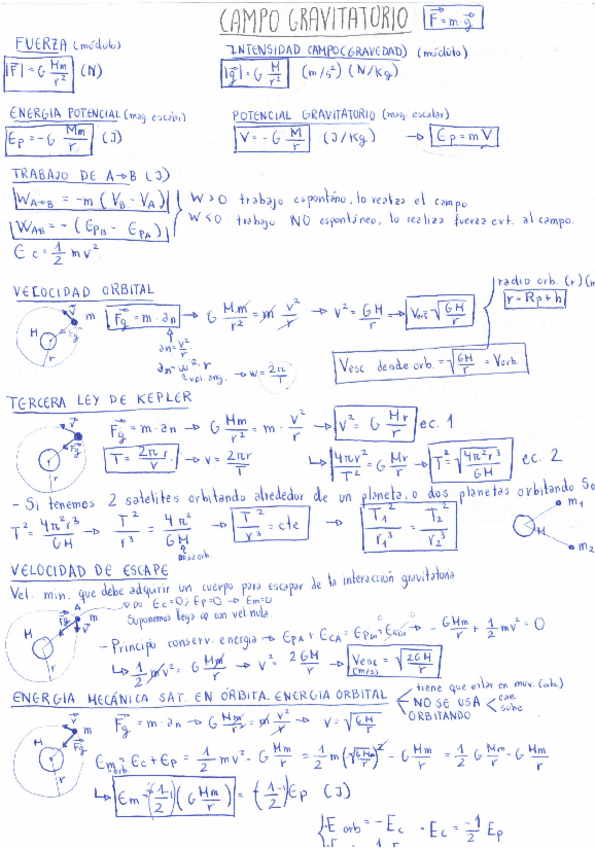 CAMPO GRAVITATORIO F = m·g
FUERZA (módulo)
|F| = G Mm/r² (N)
INTENSIDAD CAMPO (GRAVEDAD) (módulo)
|g| = G M/r² (m/s²) (N/Kg)
ENERGIA POTENCIAL (mag. escalar)
Ep = -G Mm/r (J)
POTENCIAL GRAVITATORIO (mag. escalar)
V = -G M/r (J/Kg) → Ep = mV
TRABAJO DE A→B (J)
W A→B = -m (VB - VA)
WAB = -(EpB - EpA)
W > 0 trabajo espontáno, lo realiza el campo
W < 0 trabajo NO espontáneo, lo realiza fuerza ext. al campo.
Ec = 1/2 mv²
VELOCIDAD ORBITAL
radio orb. (r) (m
r = Rp + h
Fg = m·an → G Mm/r² = m v²/r → v² = GM/r → Vorb = √GM/r
an = v²/r
an = w²·r
vel. ang. → w = 2π/T
Vesc. desde orb. = √GM/r = Vorb.
M m v Fg r
TERCERA LEY DE KEPLER
Fg = m·an → G Mm/r² = m·v²/r → v² = G Mr/r ec. 1
T = 2πr/v → v = 2πr/T
4πr²/T² = G Mr/r → T² = √4π²r³/GM ec. 2
- Si tenemos 2 satelites orbitando alrededor de un planeta, o dos planetas orbitando So
T² = 4π²r³/GM → T²/r³ = 4π²/GM → T²/r³ = cte → T1²/r1³ = T2²/r2³
m1
M
m2
VELOCIDAD DE ESCAPE
Vel. min. que debe adquirir un cuerpo para escapar de la interacción gravitatoria
Ec = 0; Ep = 0 → Em = 0
Suponemos llega con vel nula.
- Principio conserv. energia → EpA + EcA = Ep∞ + Ec∞ → -GMm/r + 1/2 mv² = 0
1/2 mv² = GMm/r → v² = 2GM/r → Vesc (m/s) = √2GM/r
ENERGIA MECÁNICA SAT. EN ÓRBITA. ENERGIA ORBITAL
tiene que estar en mov. (orb.)
NO SE USA cae
ORBITANDO sube
Fg = m·an → G Mm/r² = m v²/r → v = √GM/r
Em orb = Ec + Ep = 1/2 mv² - G Mm/r = 1/2 m(√GM/r)² - G Mm/r = 1/2 G Mm/r - G Mm/r
Em = (-1/2)(G Mm/r) = (-1/2) Ep (J)
·E orb = -Ec ·Ec = -1/2 Ep